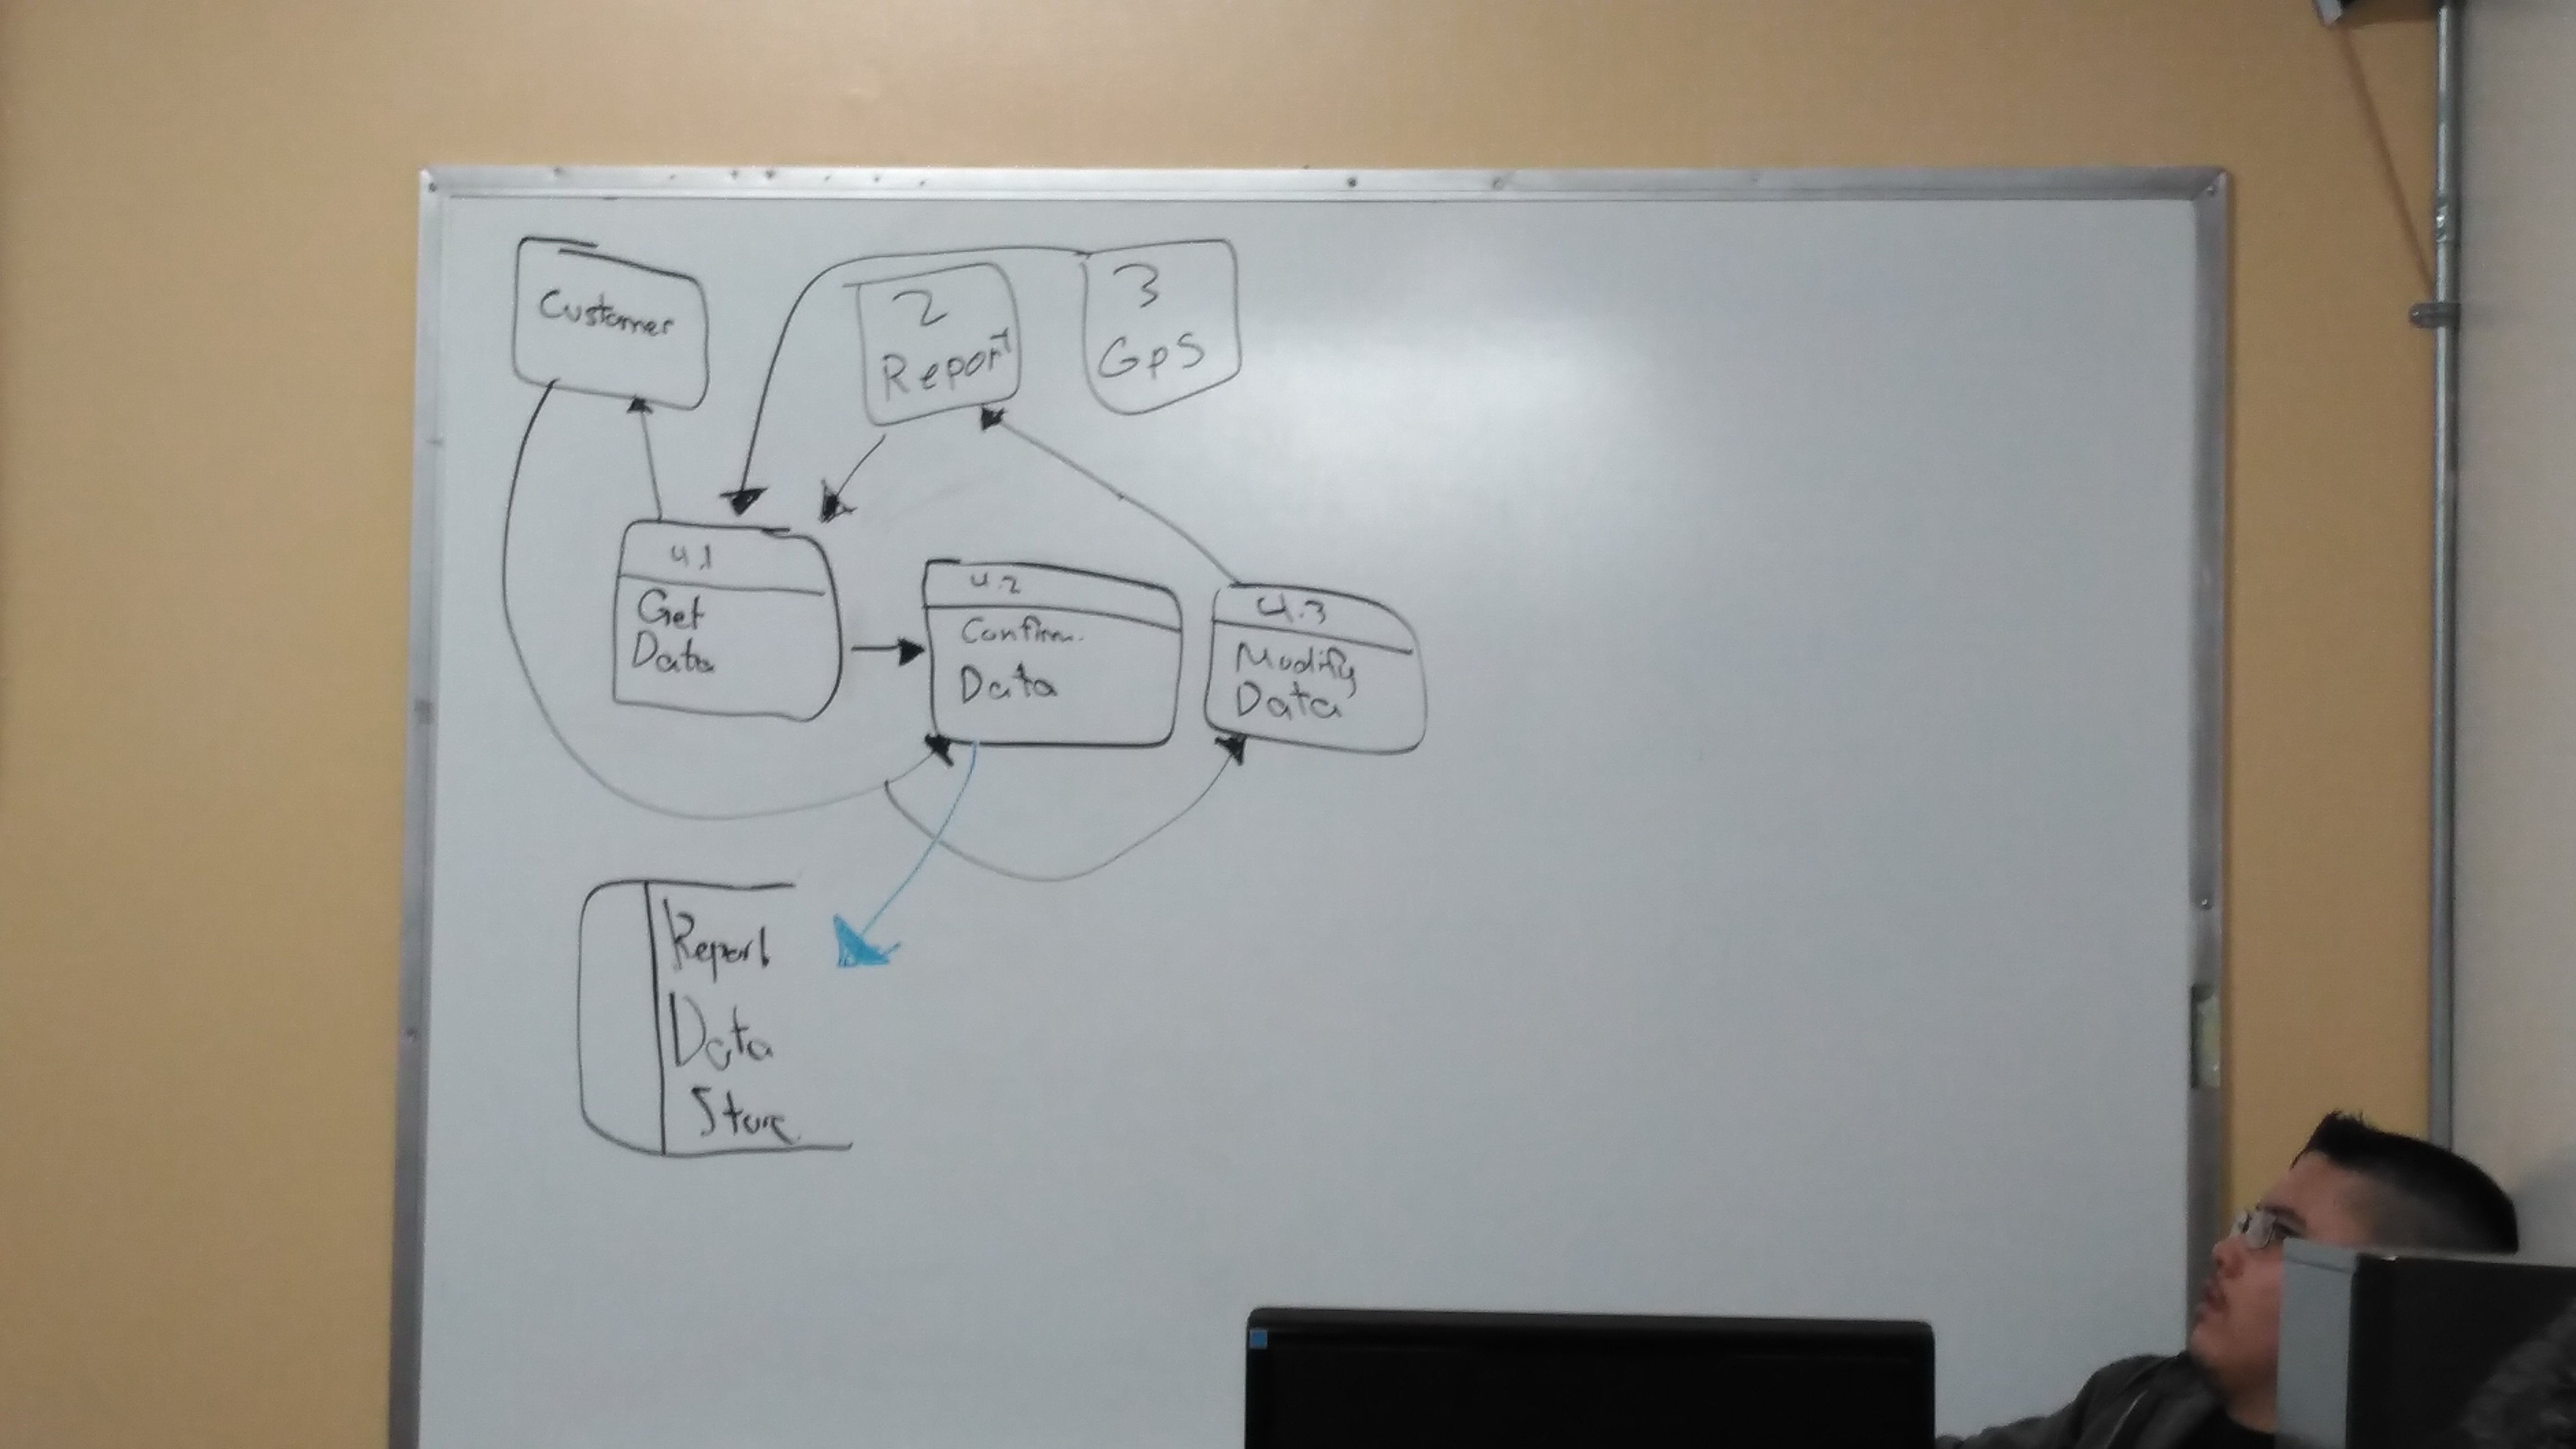 Customer
2
Report
3
GpS
4.1
Get
Data
4.2
Confirm.
Data
4.3
Modify
Data
Report
Data
Store